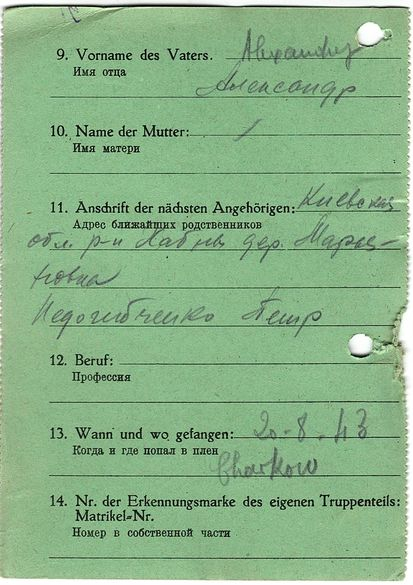 9. Vorname des Vaters. Alexander
Имя отца
Александр
10. Name der Mutter: /
Имя матери
11. Anschrift der nächsten Angehörigen: Киевская
Адрес ближайших родственников
обл. р-н Хабны дер. Марья-
новка
Петр
12. Beruf:
Профессия
13. Wann und wo gefangen: 20-8-43
Когда и где попал в плен
Charkow
14. Nr. der Erkennungsmarke des eigenen Truppenteils:
Matrikel-Nr.
Номер в собственной части